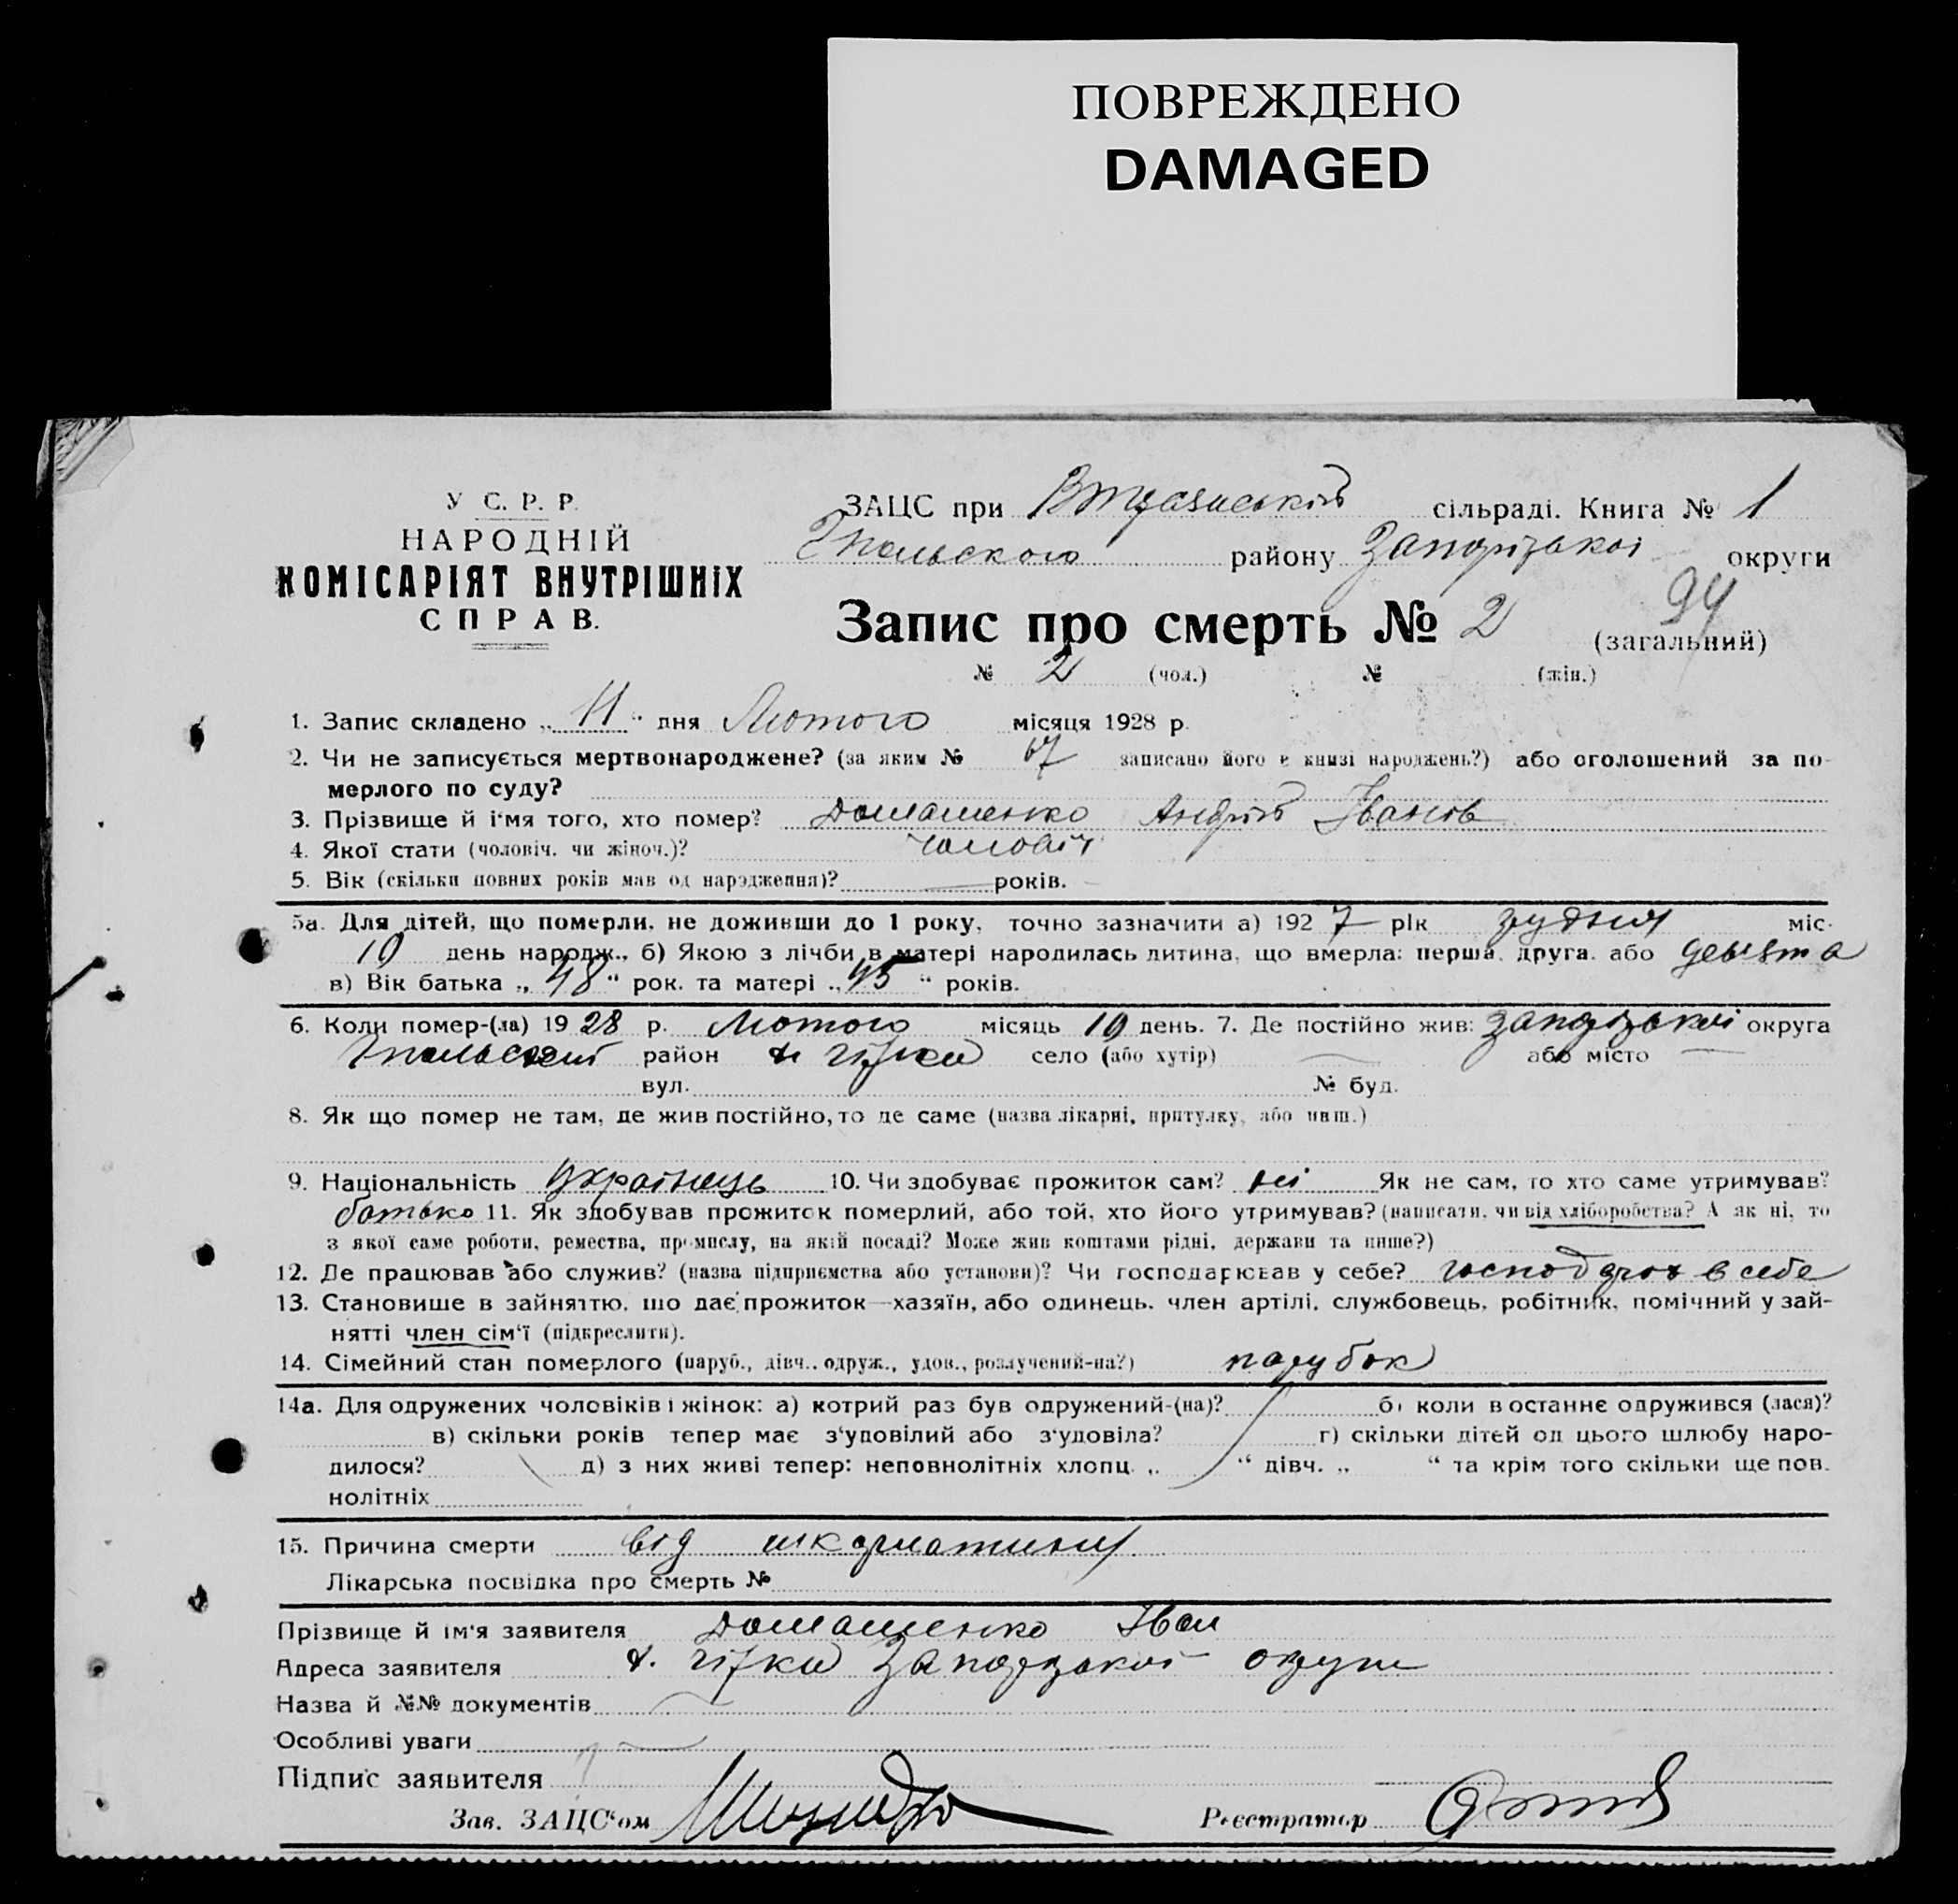 ПОВРЕЖДЕНО
DAMAGED
У С. Р. Р.
НАРОДНІЙ
КОМІСАРІЯТ ВНУТРІШНІХ
СПРАВ.
ЗАЦС при сільраді. Книга № 1
району Запорізької округи
94
Запис про смерть № 2 (загальний)
№ 2 (чол.) № (жін.)
1. Запис складено „ 11 " дня Лютого місяця 1928 р.
2. Чи не записується мертвонароджене? (за яким № записано його в книзі народжень?) або оголошений за по-
мерлого по суду?
3. Прізвище й ім'я того, хто помер? Домашенко Андрій Іванів
4. Якої стати (чоловіч. чи жіноч.)? чоловіч
5. Вік (скільки повних років мав од народження)? — років.
5а. Для дітей, що померли, не доживши до 1 року, точно зазначити а) 192 7 рік грудня міс.
10 день народж., б) Якою з лічби в матері народилась дитина, що вмерла: перша, друга, або девята
в) Вік батька „ 48 " рок. та матері „ 45 " років.
6. Коли помер-(ла) 19 28 р. Лютого місяць 10 день. 7. Де постійно жив: Запорізької округа
район село (або хутір) — або місто —
вул. № буд.
8. Як що помер не там, де жив постійно, то де саме (назва лікарні, притулку, або инш.)
9. Національність Українець 10. Чи здобуває прожиток сам? ні Як не сам, то хто саме утримував?
батько 11. Як здобував прожиток померлий, або той, хто його утримував? (написати, чи від хліборобства? А як ні, то
з якої саме роботи, ремества, промислу, на якій посаді? Може жив коштами рідні, держави та инше?)
12. Де працював або служив? (назва підприємства або установи)? Чи господарював у себе? господарюв в себе
13. Становище в зайняттю, що дає прожиток—хазяїн, або одинець, член артілі, службовець, робітник, помічний у зай-
нятті член сім'ї (підкреслити).
14. Сімейний стан померлого (паруб., дівч., одруж., удов., розлучений-на?) парубок
14а. Для одружених чоловіків і жінок: а) котрий раз був одружений-(на)? б) коли в останнє одружився (лася)?
в) скільки років тепер має з'удовілий або з'удовіла? г) скільки дітей од цього шлюбу наро-
дилося? д) з них живі тепер: неповнолітніх хлопц. „ " дівч. „ " та крім того скільки ще пов.
нолітніх
15. Причина смерти від шкарлатини
Лікарська посвідка про смерть №
Прізвище й ім'я заявителя Домашенко Іван
Адреса заявителя Запорізької округи
Назва й №№ документів
Особливі уваги
Підпис заявителя
Зав. ЗАЦС'ом Реєстратор